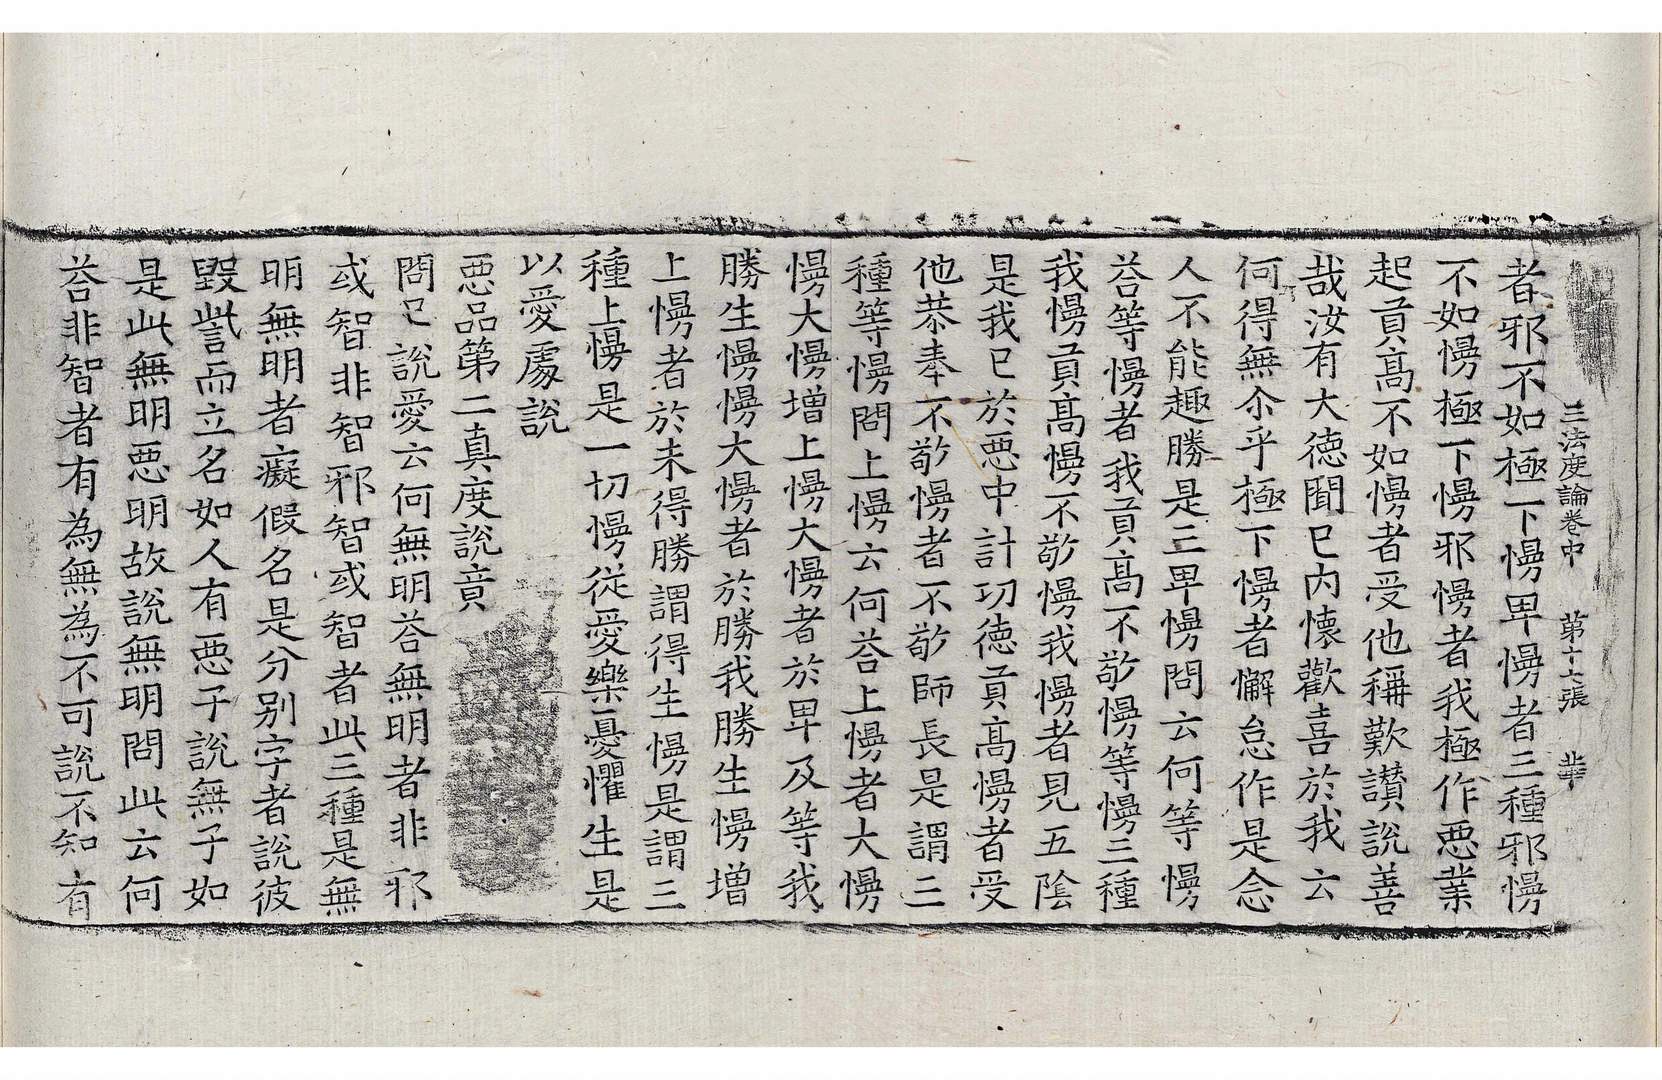 三法度論卷中　第十七張　華
者邪不如極下慢卑慢者三種邪慢
不如慢極下慢邪慢者我極作惡業
起貢高不如慢者受他稱歎讃說善
哉汝有大德聞已内懷歡喜於我云
何得無尒乎極下慢者懈怠作是念
人不能趣勝是三卑慢問云何等慢
荅等慢者我貢高不敬慢等慢三種
我慢貢高慢不敬慢我慢者見五陰
是我已於惡中計功德貢高慢者受
他恭奉不敬慢者不敬師長是謂三
種等慢問上慢云何荅上慢者大慢
慢大慢增上慢大慢者於卑及等我
勝生慢慢大慢者於勝我勝生慢增
上慢者於未得勝謂得生慢是謂三
種上慢是一切慢從愛樂憂懼生是
以愛處說
惡品第二真度說竟
問已說愛云何無明荅無明者非邪
或智非智邪智或智者此三種是無
明無明者癡假名是分別字者說彼
毀呰而立名如人有惡子說無子如
是此無明惡明故說無明問此云何
荅非智者有為無為不可說不知有